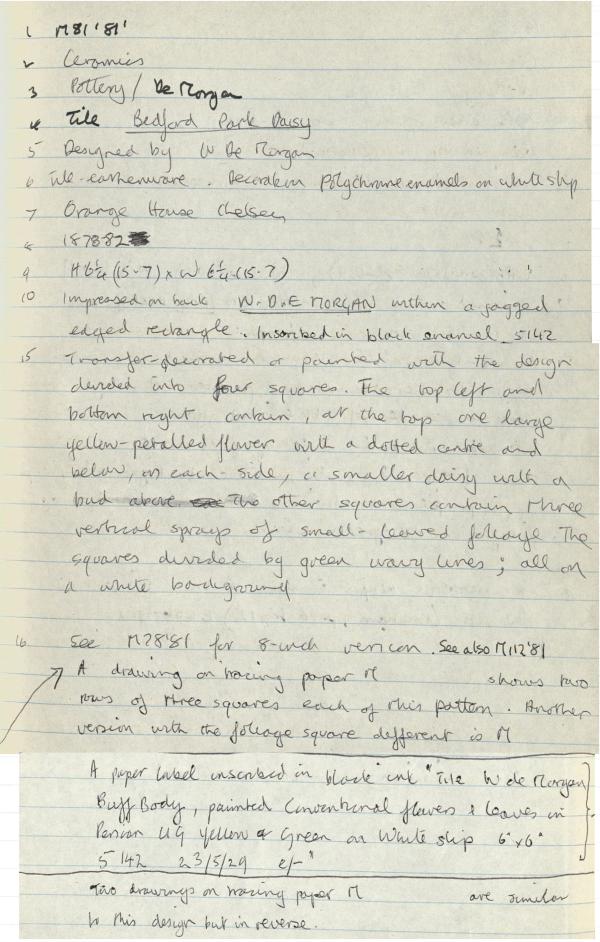 1 M81'81'
2 Ceramics
3 Pottery / De Morgan
4 Tile Bedford Park Daisy
5 Designed by W De Morgan
6 Tile-earthenware. Decoration Polychrome enamels on white slip
7 Orange House Chelsea
8 1878-82
9 H 6¼ (15.7) x W 6¼ (15.7)
10 Impressed on back W.D.E MORGAN within a jagged
edged rectangle. Inscribed in black enamel 5142
15 Transfer-decorated or painted with the design
divided into four squares. The top left and
bottom right contain, at the top one large
yellow-petalled flower with a dotted centre and
below, on each side, a smaller daisy with a
bud above. The other squares contain three
vertical sprays of small-leaved foliage The
squares divided by green wavy lines; all on
a white background
16 See M28'81 for 8-inch version. See also M112'81
A drawing on tracing paper M shows two
rows of three squares each of this pattern. Another
version with the foliage square different is M
A paper label inscribed in black ink "Tile W de Morgan
Buff Body, painted Conventional flowers & leaves in
Persian UG Yellow & Green on White slip 6" x 6"
5142 23/5/29 e/-"
Two drawings on tracing paper M are similar
to this design but in reverse.